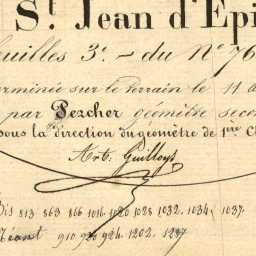 St. Jean d'Epi
euilles 3e. - du No 76
erminée sur le terrain le 11 a
par Pezcher géomètre secon
sous la direction du géomètre de 1ère C
Art. Guilloys
Bis 813 863 866 1016 1020 1028 1032. 1034. 1037.
éant 910 920 924 1202. 1237